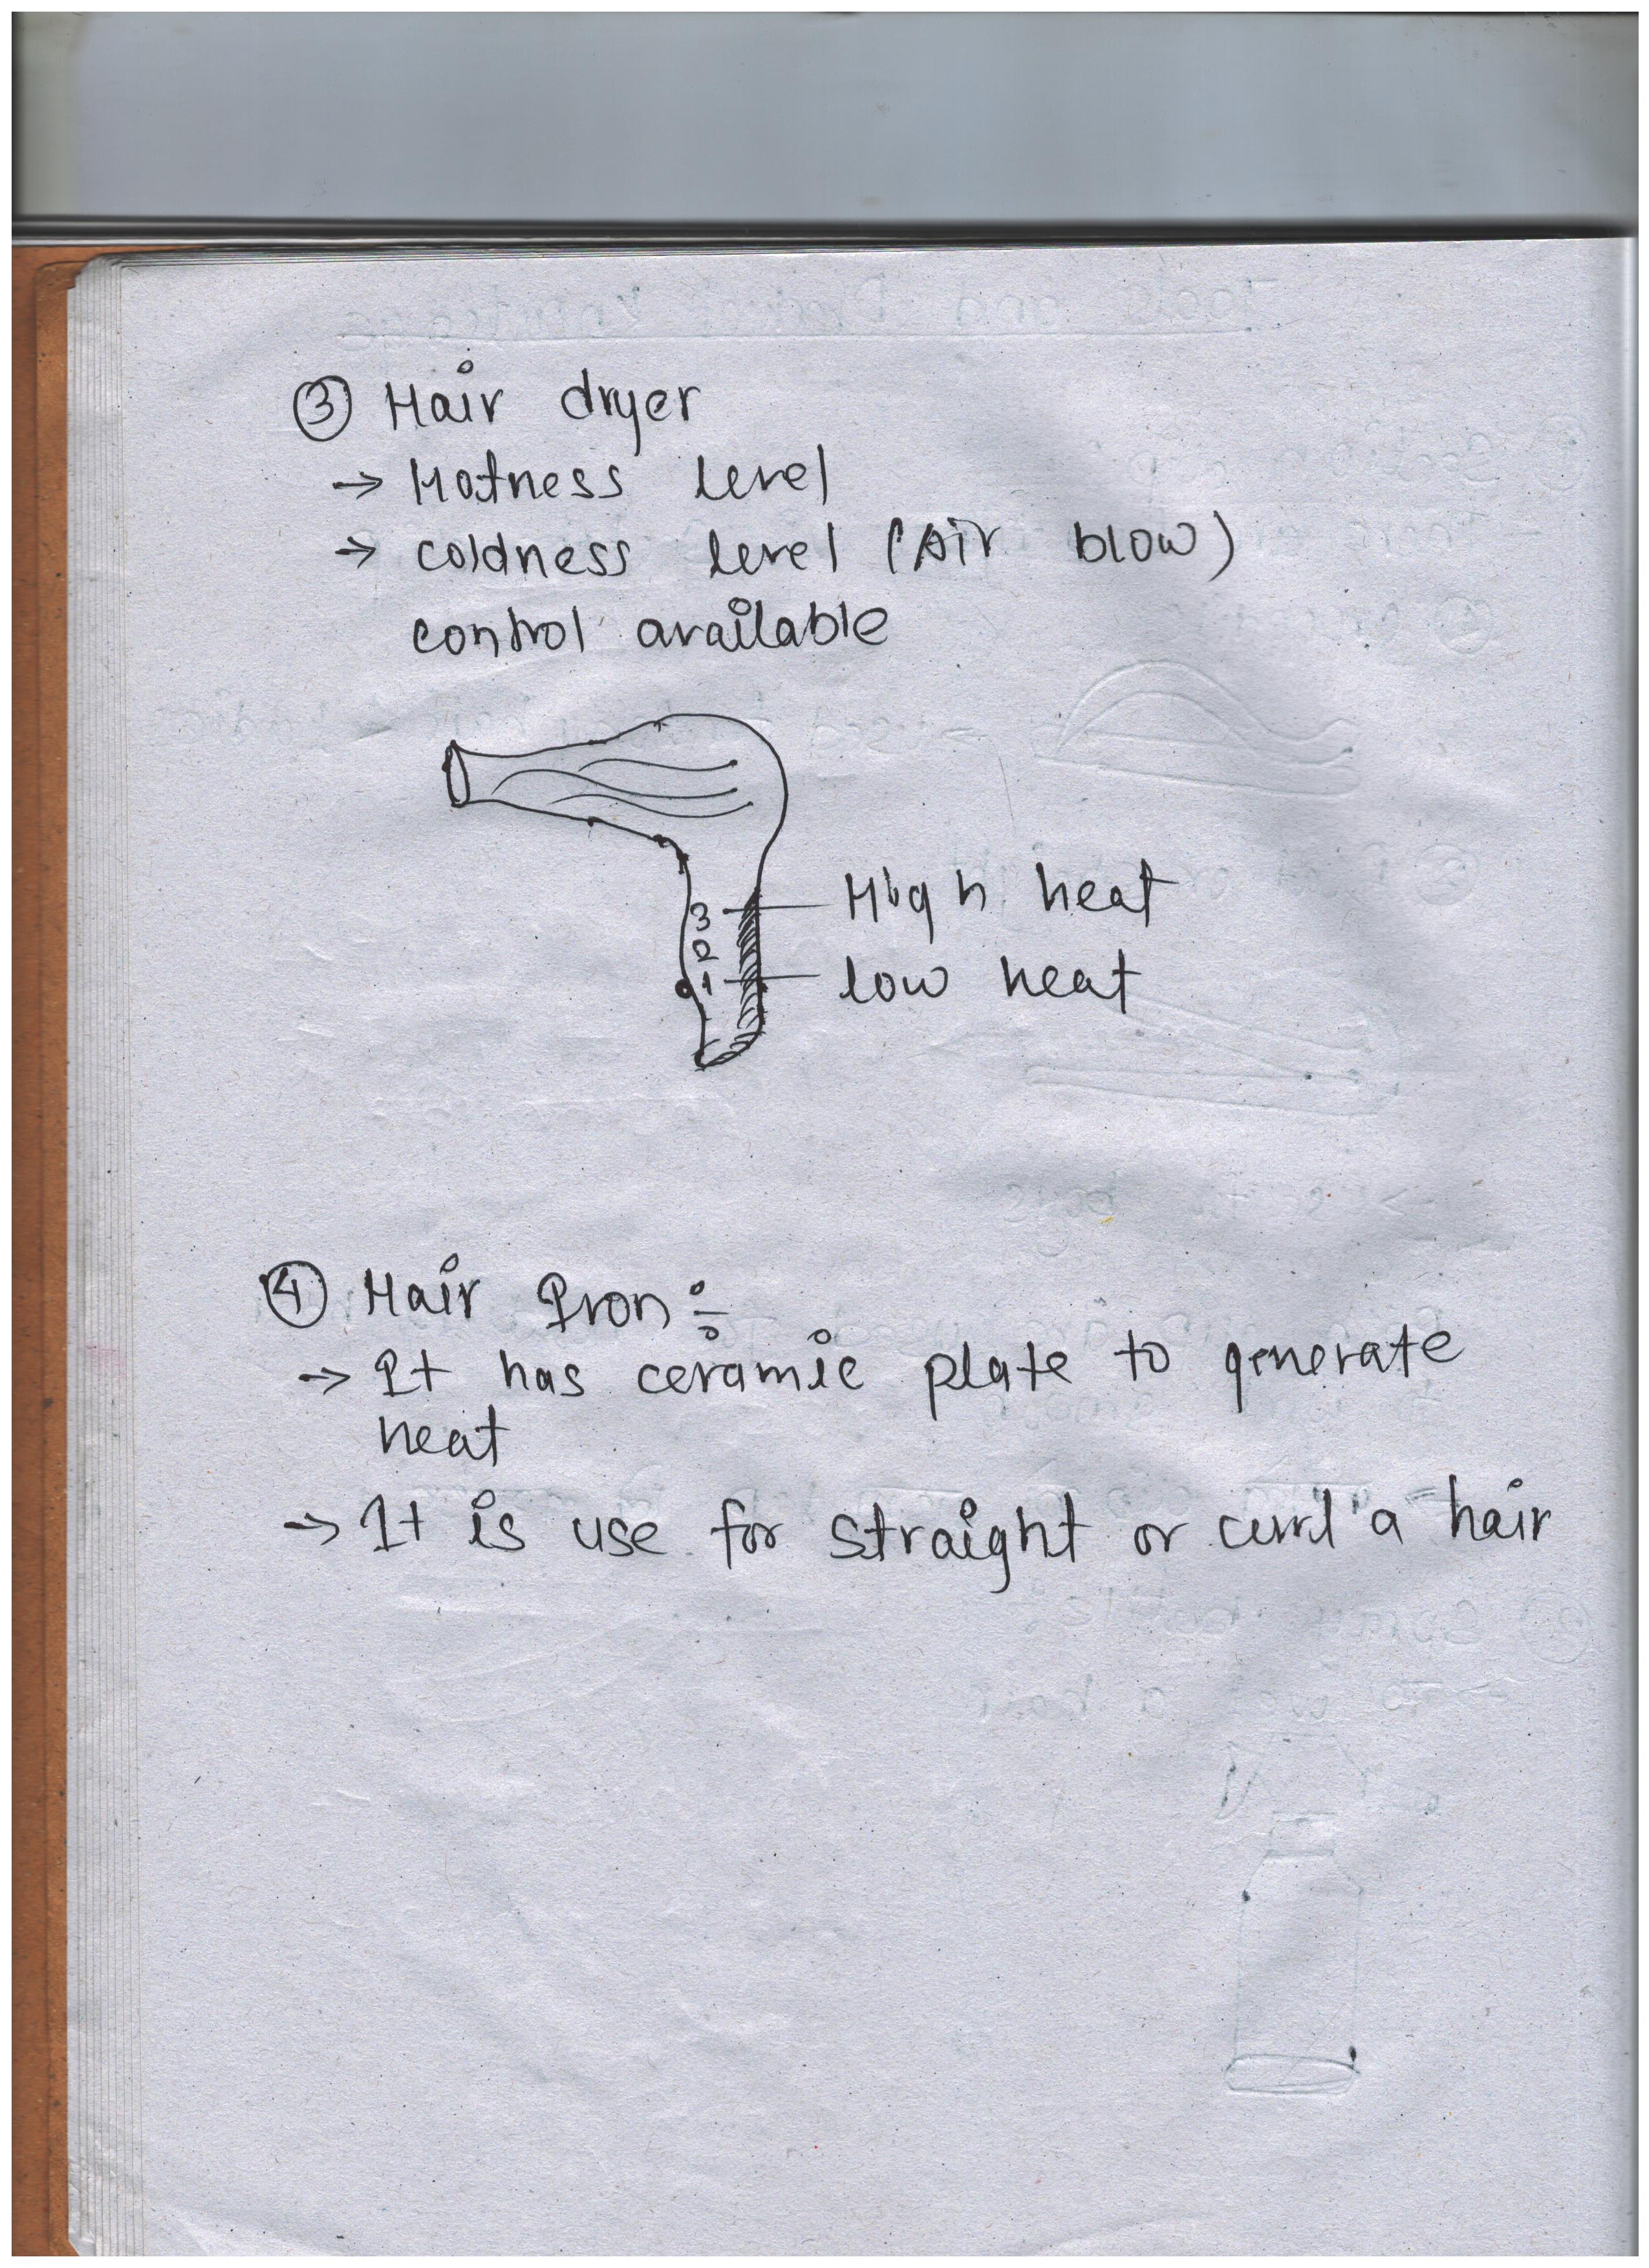 ③ Hair dryer
→ Hotness level
→ coldness level (Air blow)
control available
3 High heat
2
1 low heat
④ Hair Iron ÷
→ It has ceramic plate to generate
heat
→ It is use for straight or curl a hair